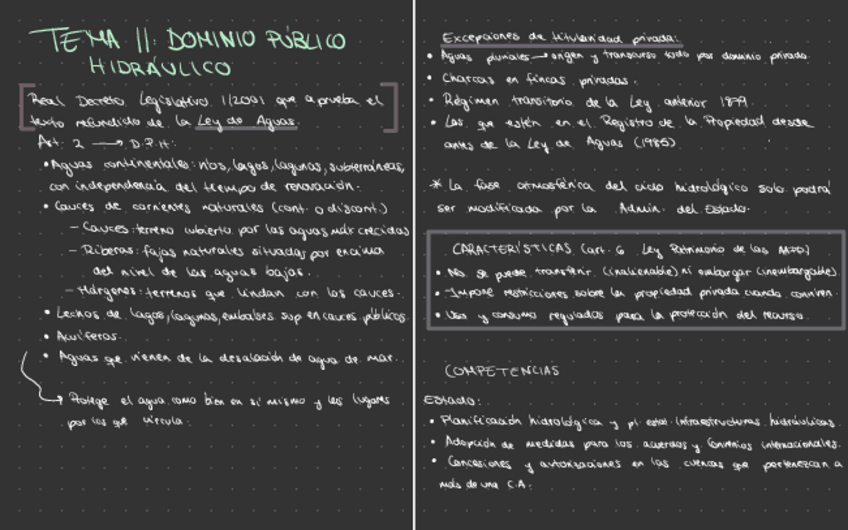 TEMA 11: DOMINIO PÚBLICO
HIDRÁULICO
Real Decreto Legislativo 1/2001 que aprueba el
texto refundido de la Ley de Aguas.
Art. 2 → D.P.H:
• Aguas continentales: ríos, lagos, lagunas, subterráneas,
con independencia del tiempo de renovación.
• Cauces de corrientes naturales (cont. o discont.)
- Cauces: terreno cubierto por las aguas máx crecidas
- Riberas: fajas naturales situadas por encima
del nivel de las aguas bajas.
- Márgenes: terrenos que lindan con los cauces.
• Lechos de lagos, lagunas, embalses sup en cauces públicos.
• Acuíferos.
• Aguas que vienen de la desalación de agua de mar.
→ Protege el agua como bien en si mismo y los lugares
por los que circula.
Excepciones de titularidad privada:
• Aguas pluviales → origen y transcurso todo por dominio privado.
• Charcas en fincas privadas.
• Régimen transitorio de la Ley anterior 1879.
• Las que estén en el Registro de la Propiedad desde
antes de la Ley de Aguas (1985)
* La fase atmosférica del ciclo hidrológico solo podrá
ser modificada por la Admin. del Estado.
CARACTERÍSTICAS (art. 6 Ley Patrimonio de las AAPP)
• No se puede transferir (inalienable) ni embargar (inembargable)
• Impone restricciones sobre la propiedad privada cuando conviven.
• Uso y consumo regulados para la protección del recurso.
COMPETENCIAS
Estado:
• Planificación hidrológica y pl. estat. infraestructuras hidráulicas.
• Adopción de medidas para los acuerdos y Convenios internacionales.
• Concesiones y autorizaciones en las cuencas que pertenezcan a
más de una C.A.